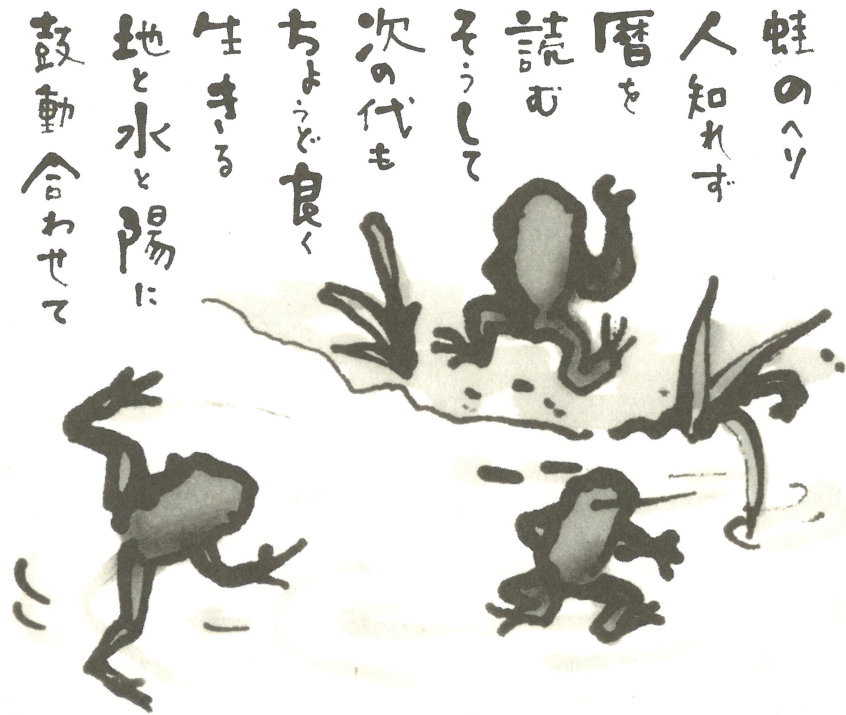 蛙のヘリ
人知れず
暦を
読む
そうして
次の代も
ちょうど良く
生きる
地と水と陽に
鼓動合わせて